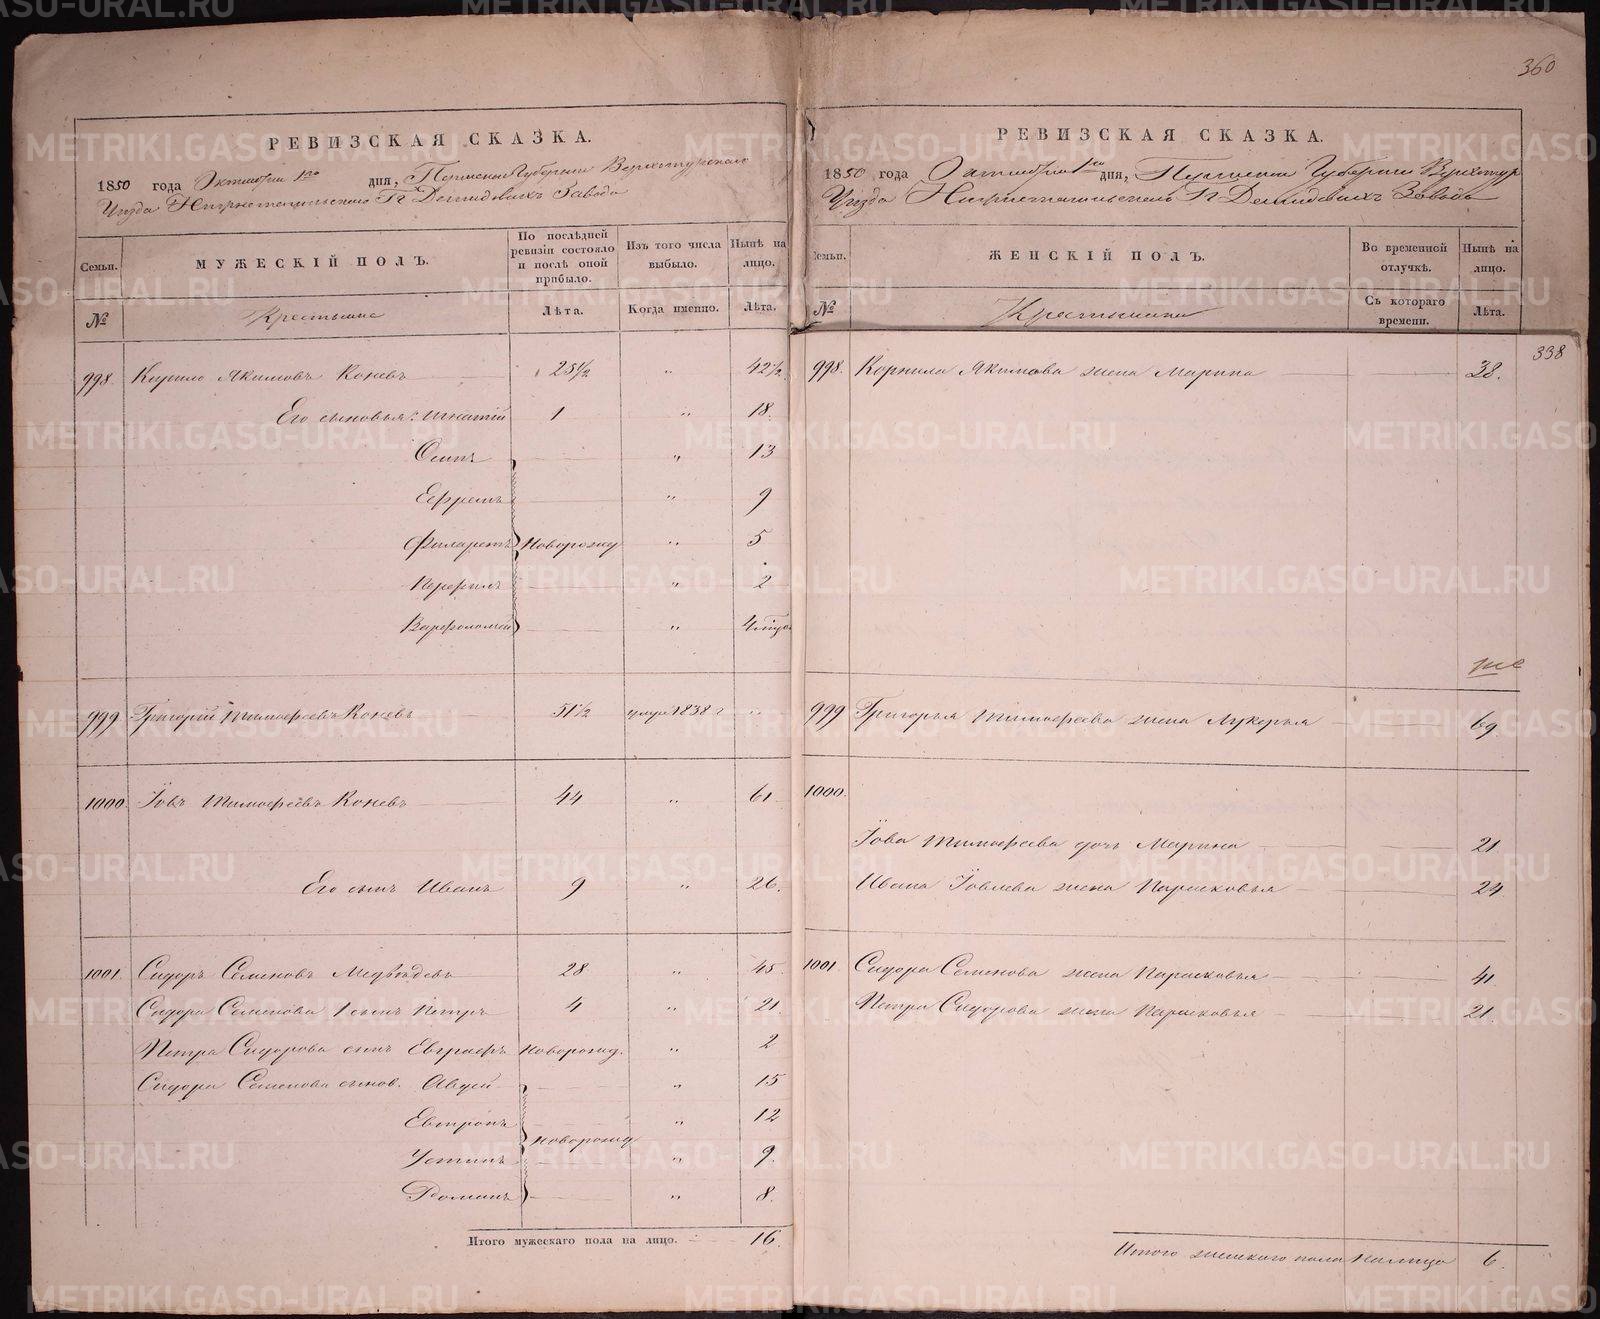 360
РЕВИЗСКАЯ СКАЗКА.
1850 года Октября 1го дня, Пермской Губернии Верхотурскаго
Уезда Нижнетагильскаго Гг Демидовыхъ Завода
Семьи.
МУЖЕСКІЙ ПОЛЪ.
По послѣдней ревизіи состояло и послѣ оной прибыло.
Изъ того числа выбыло.
Нынѣ на лицо.
№
Крестьяне
Лѣта.
Когда именно.
Лѣта.
998. Якимовъ Коневъ 25½ " 42½
Его сыновья: Игнатій 1 " 18.
Осипъ " 13
Ефремъ " 9
Филаретъ Новорожд " 5
Перфилъ " 2
Варфоломей " 4
999. Григорій Тимофеевъ Коневъ 51½ умре 1838 г "
1000. Іовъ Тимофеевъ Коневъ 44 " 61
Его сынъ Иванъ 9 " 26.
1001. Сидоръ Семеновъ Медвѣдевъ 28 " 45.
Сидора Семенова 1 сынъ Петръ 4 " 21.
Петра Сидорова сынъ Евграфъ Новорожд. " 2
Сидора Семенова сынов. Авдей " 15
Евтропъ " 12
Новорожд
Устинъ " 9.
Романъ " 8.
Итого мужескаго пола на лицо. 16.
РЕВИЗСКАЯ СКАЗКА.
1850 года Октября 1го дня, Пермской Губернии Верхотур
Уезда Нижнетагильскаго Гг Демидовыхъ Завода
Семьи.
ЖЕНСКІЙ ПОЛЪ.
Во временной отлучкѣ.
Нынѣ на лицо.
№
Крестьянки
Съ котораго времени.
Лѣта.
338
998. Корнила Якимова жена Марина 38.
999 Григорья Тимофеева жена Лукерья 69.
1000.
Іова Тимофеева дочь Марина 21
Ивана Іовлева жена Парасковья 24
1001. Сидора Семенова жена Парасковья 41
Петра Сидорова жена Парасковья 21.
Итого женскаго пола на лицо 6.
METRIKI.GASO-URAL.RU